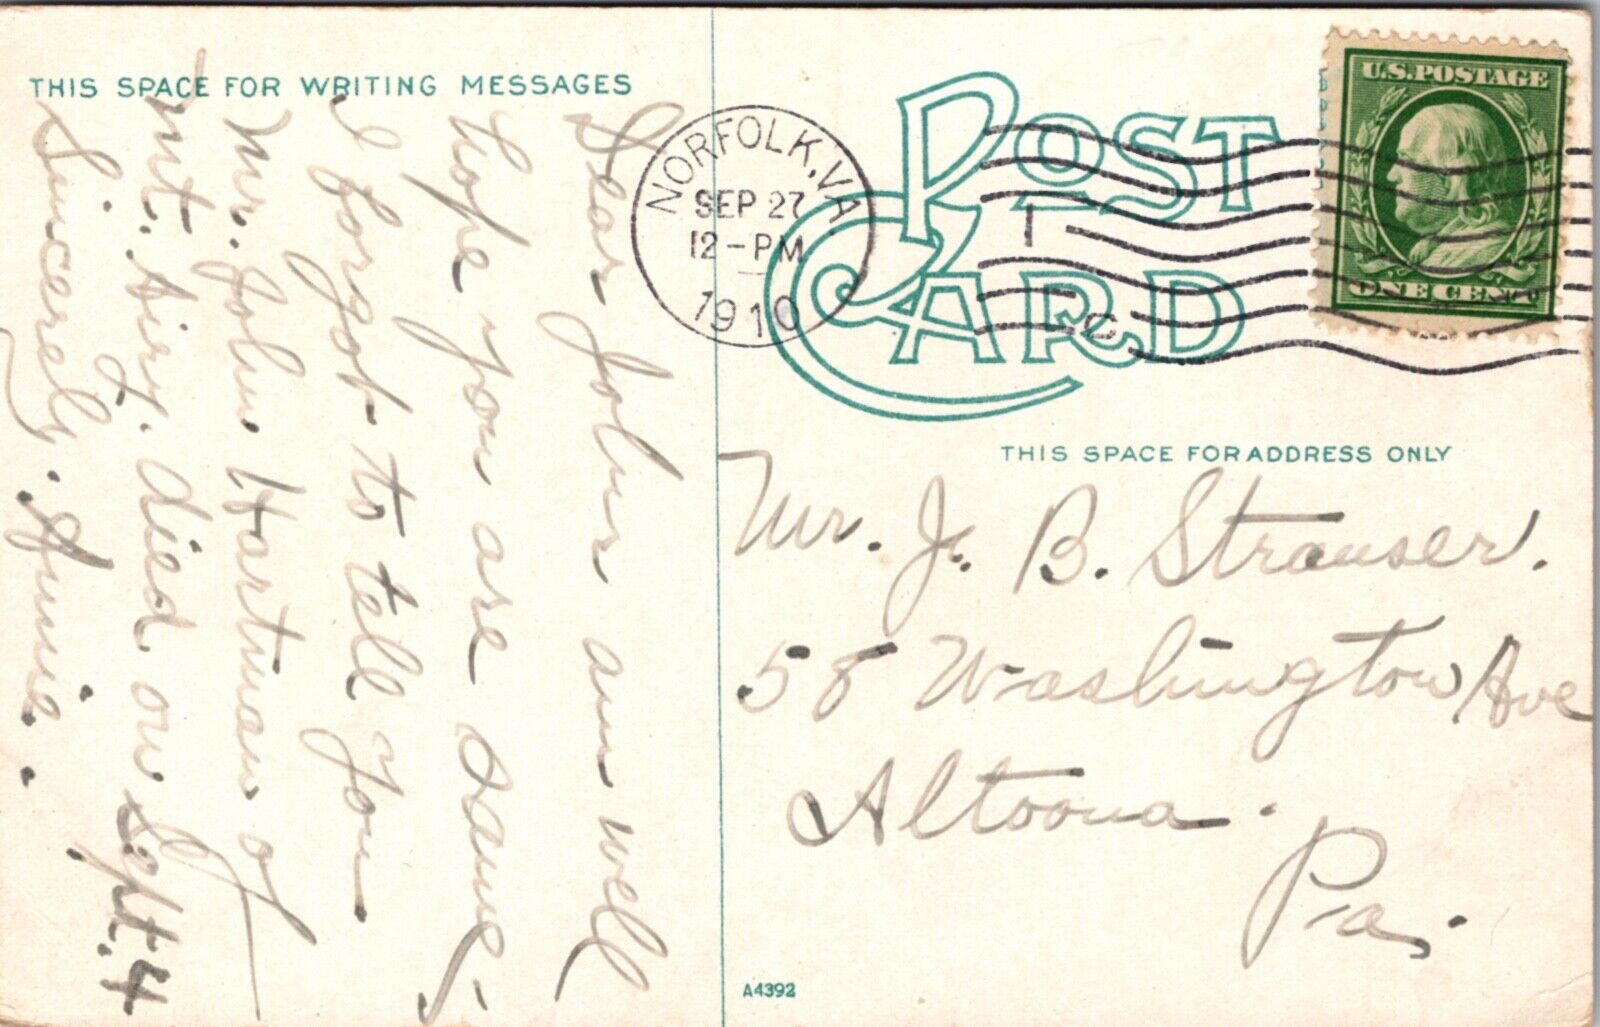 THIS SPACE FOR WRITING MESSAGES
Dear John am well
hope you are same -
I forgot to tell you
Mr. John Hartman of
Mt. Airy. died on Sept. 4
Sincerely. Annie.
POST CARD
NORFOLK, VA
SEP 27
12 - PM
1910
U.S. POSTAGE
ONE CENT
THIS SPACE FOR ADDRESS ONLY
Mr. J. B. Strauser.
58 Washington Ave
Altoona.
Pa.
A4392